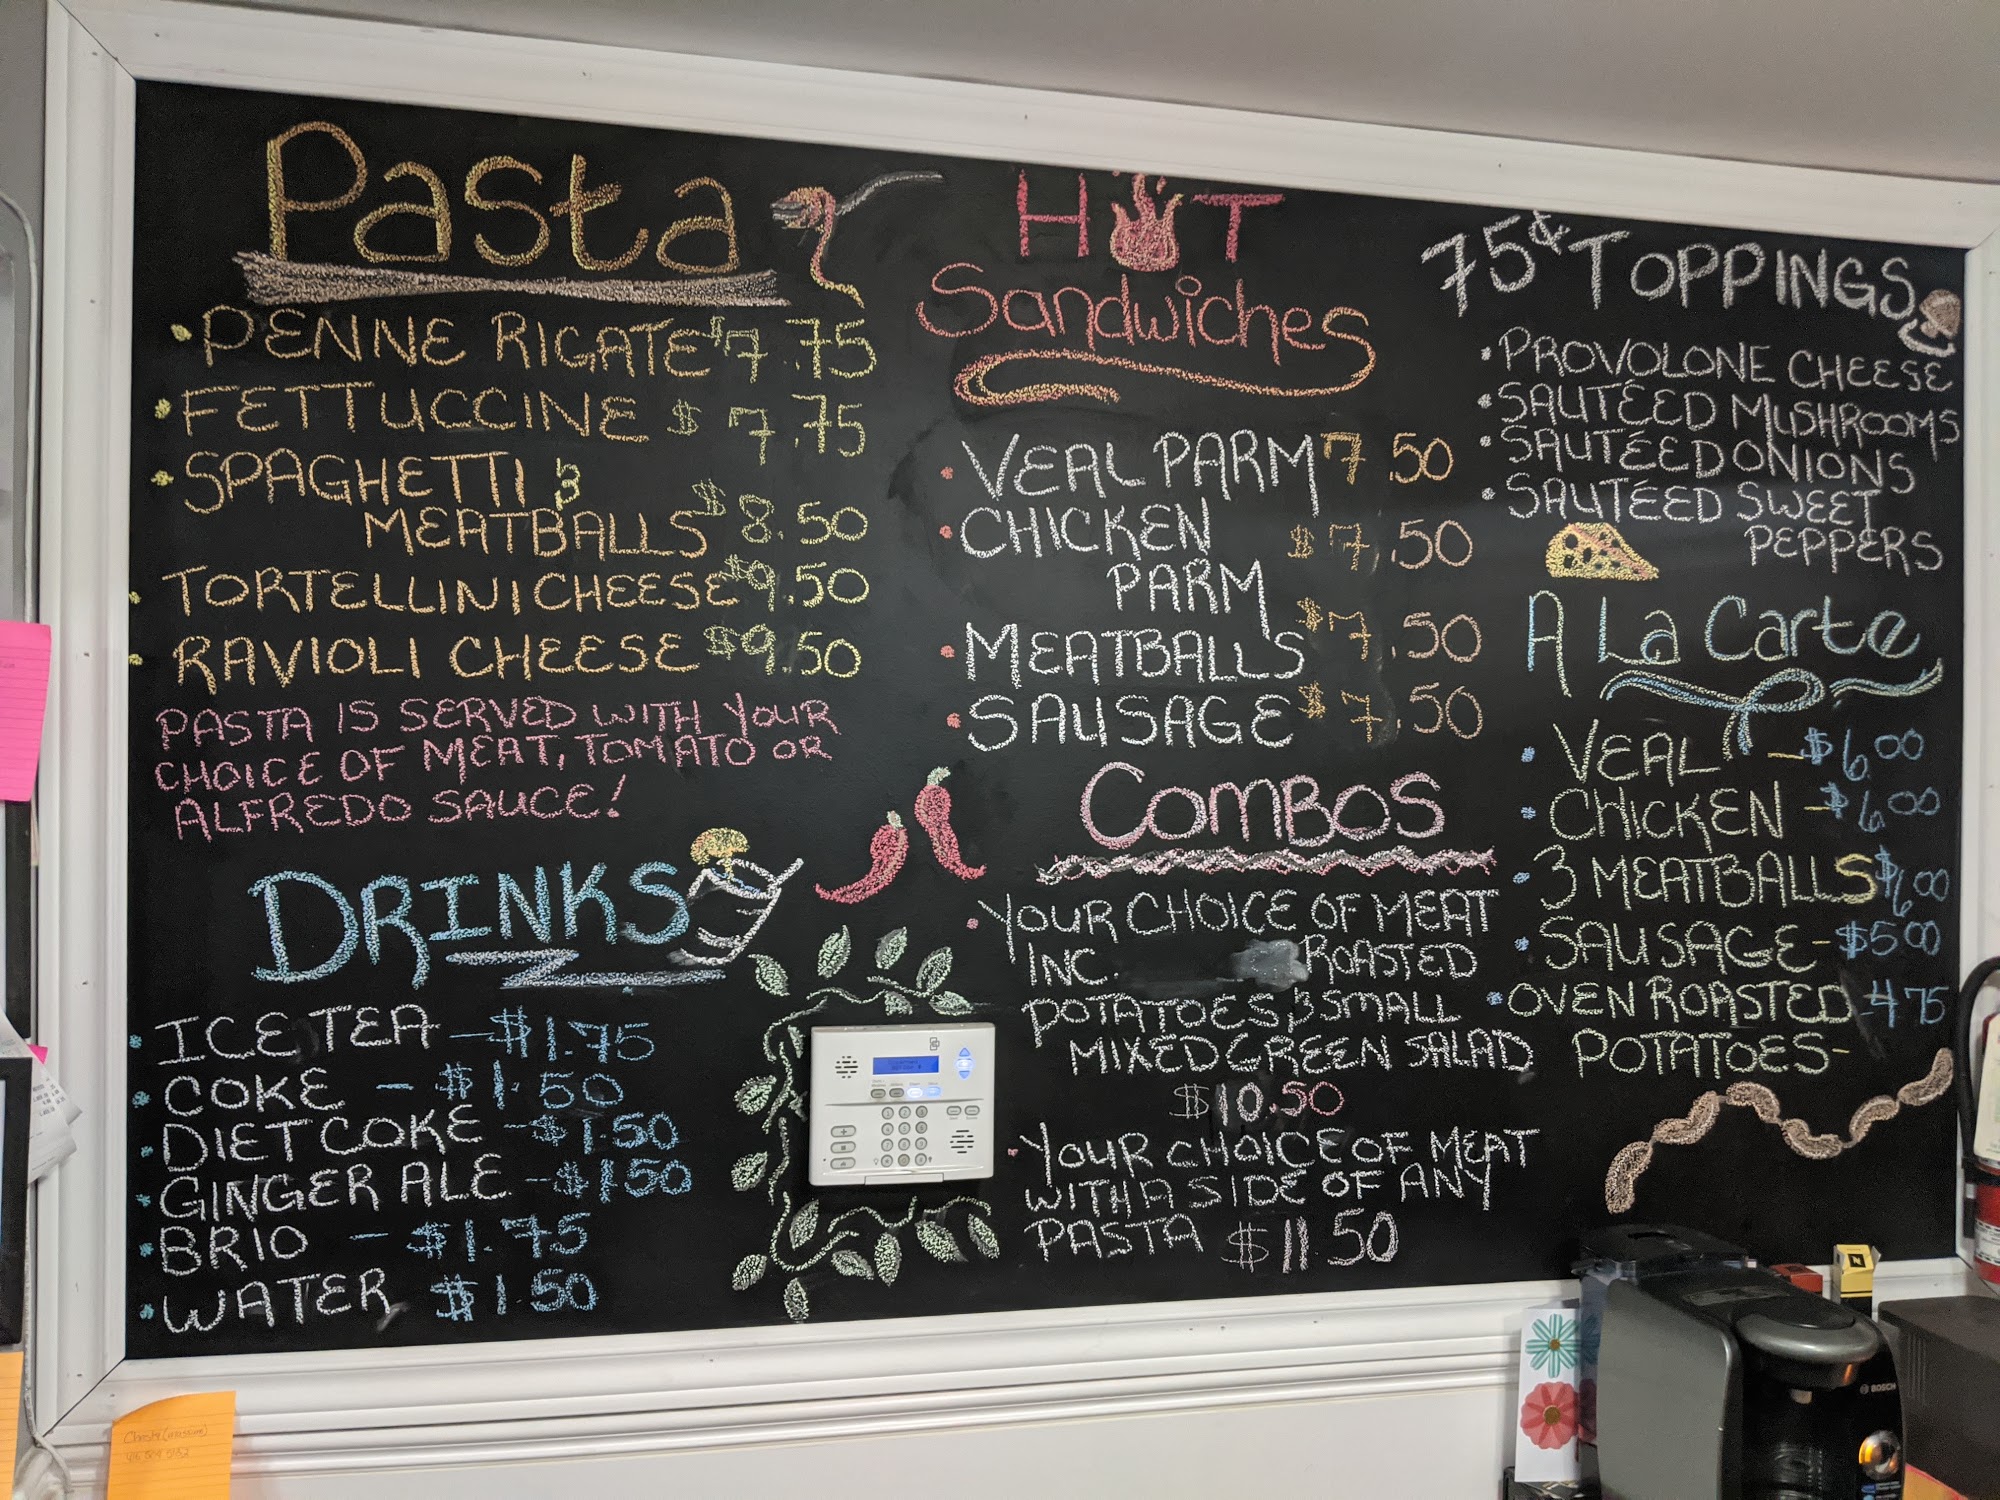 Pasta
PENNE RIGATE $7.75
FETTUCCINE $7.75
SPAGHETTI &
MEATBALLS $8.50
TORTELLINI CHEESE $9.50
RAVIOLI CHEESE $9.50
PASTA IS SERVED WITH YOUR
CHOICE OF MEAT, TOMATO OR
ALFREDO SAUCE!
DRINKS
ICE TEA - $1.75
COKE - $1.50
DIET COKE - $1.50
GINGER ALE - $1.50
BRIO - $1.75
WATER $1.50
HOT
Sandwiches
VEAL PARM 7.50
CHICKEN $7.50
PARM
MEATBALLS $7.50
SAUSAGE $7.50
COMBOS
YOUR CHOICE OF MEAT
INC. ROASTED
POTATOES & SMALL
MIXED GREEN SALAD
$10.50
YOUR CHOICE OF MEAT
WITH A SIDE OF ANY
PASTA $11.50
75¢ TOPPINGS
PROVOLONE CHEESE
SAUTÉED MUSHROOMS
SAUTÉED ONIONS
SAUTÉED SWEET
PEPPERS
A La Carte
VEAL - $6.00
CHICKEN - $6.00
3 MEATBALLS $6.00
SAUSAGE - $5.00
OVEN ROASTED 4.75
POTATOES -
BOSCH